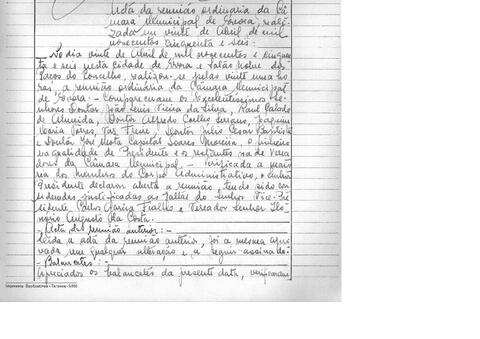 Acta da reunião ordinária da Câ-
mara Municipal de Évora, reali-
zada em vinte de Abril de mil
novecentos cinquenta e seis:
No dia vinte de Abril de mil novecentos e cinquen-
ta e seis nesta cidade de Évora e salão nobre dos
Paços do Concelho, realizou-se pelas vinte uma ho-
ras, a reunião ordinária da Câmara Municipal
de Évora. - Compareceram os Excelentíssimos Se-
nhores Doutor João Luís Vieira da Silva, Raul
de Almeida, Doutor Alfredo Coelho Serrano, Joaquim
Freire, Doutor Júlio Cesar Baptista
e Doutor José Soares Moreira, o primeiro
na qualidade de Presidente e os restantes na de Verea-
dores da Câmara Municipal. - Verificada a maio-
ria dos membros do Corpo Administrativo, o senhor
Presidente declarou aberta a reunião, tendo sido con-
sideradas justificadas as faltas do Senhor Vice-Pre-
sidente, Fialho e Vereador Senhor
Augusto da Costa.
- Acta da reunião anterior: -
Lida a acta da reunião anterior, foi a mesma apro-
vada sem qualquer alteração e a seguir assinada.
- Balancetes: -
Apreciados os balancetes da presente data, verificaram